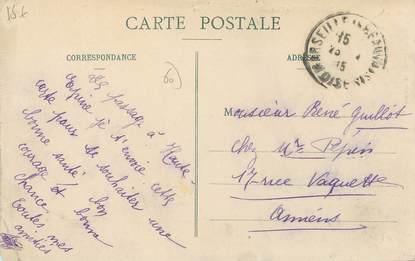 15 €
CARTE POSTALE
CORRESPONDANCE
ADRESSE
MARSEILLE
15
OISE
De passage à
je t'envoie cette
carte pour te souhaiter une
bonne santé bon
courage et bonne
chance
toutes mes
amitiés
60
Monsieur René Guillot
chez Mr Pépin
17 rue Vaquette
Amiens